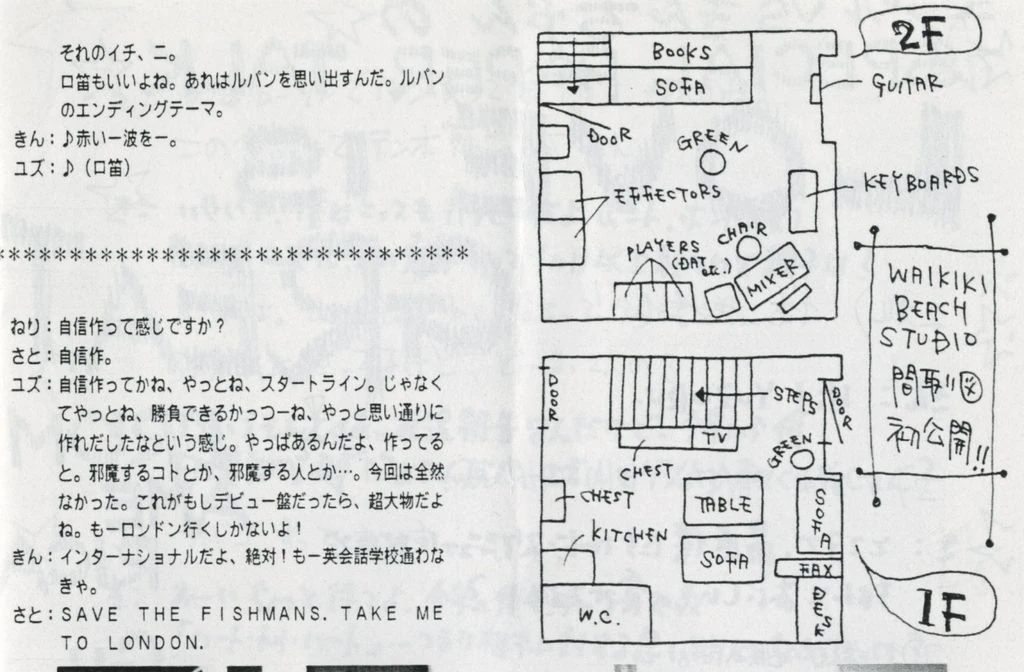 それのイチ、ニ。
口笛もいいよね。あれはルパンを思い出すんだ。ルパン
のエンディングテーマ。
きん：♪赤い一波を一。
ユズ：♪（口笛）
*********************************
ねり：自信作って感じですか？
さと：自信作。
ユズ：自信作ってかね、やっとね、スタートライン。じゃなく
てやっとね、勝負できるかっつーね、やっと思い通りに
作れだしたなという感じ。やっぱあるんだよ、作ってる
と。邪魔するコトとか、邪魔する人とか…。今回は全然
なかった。これがもしデビュー盤だったら、超大物だよ
ね。もーロンドン行くしかないよ！
きん：インターナショナルだよ、絶対！もー英会話学校通わな
きゃ。
さと：SAVE THE FISHMANS. TAKE ME
TO LONDON.
2F
BOOKS
SOFA
GUITAR
DOOR
GREEN
EFFECTORS
KEYBOARDS
CHAIR
PLAYERS
(DAT etc.)
MIXER
WAIKIKI
BEACH
STUDIO
間取り図
初公開!!
DOOR
STEPS
DOOR
TV
GREEN
CHEST
CHEST
TABLE
SOFA
KITCHEN
SOFA
FAX
DESK
W.C.
1F